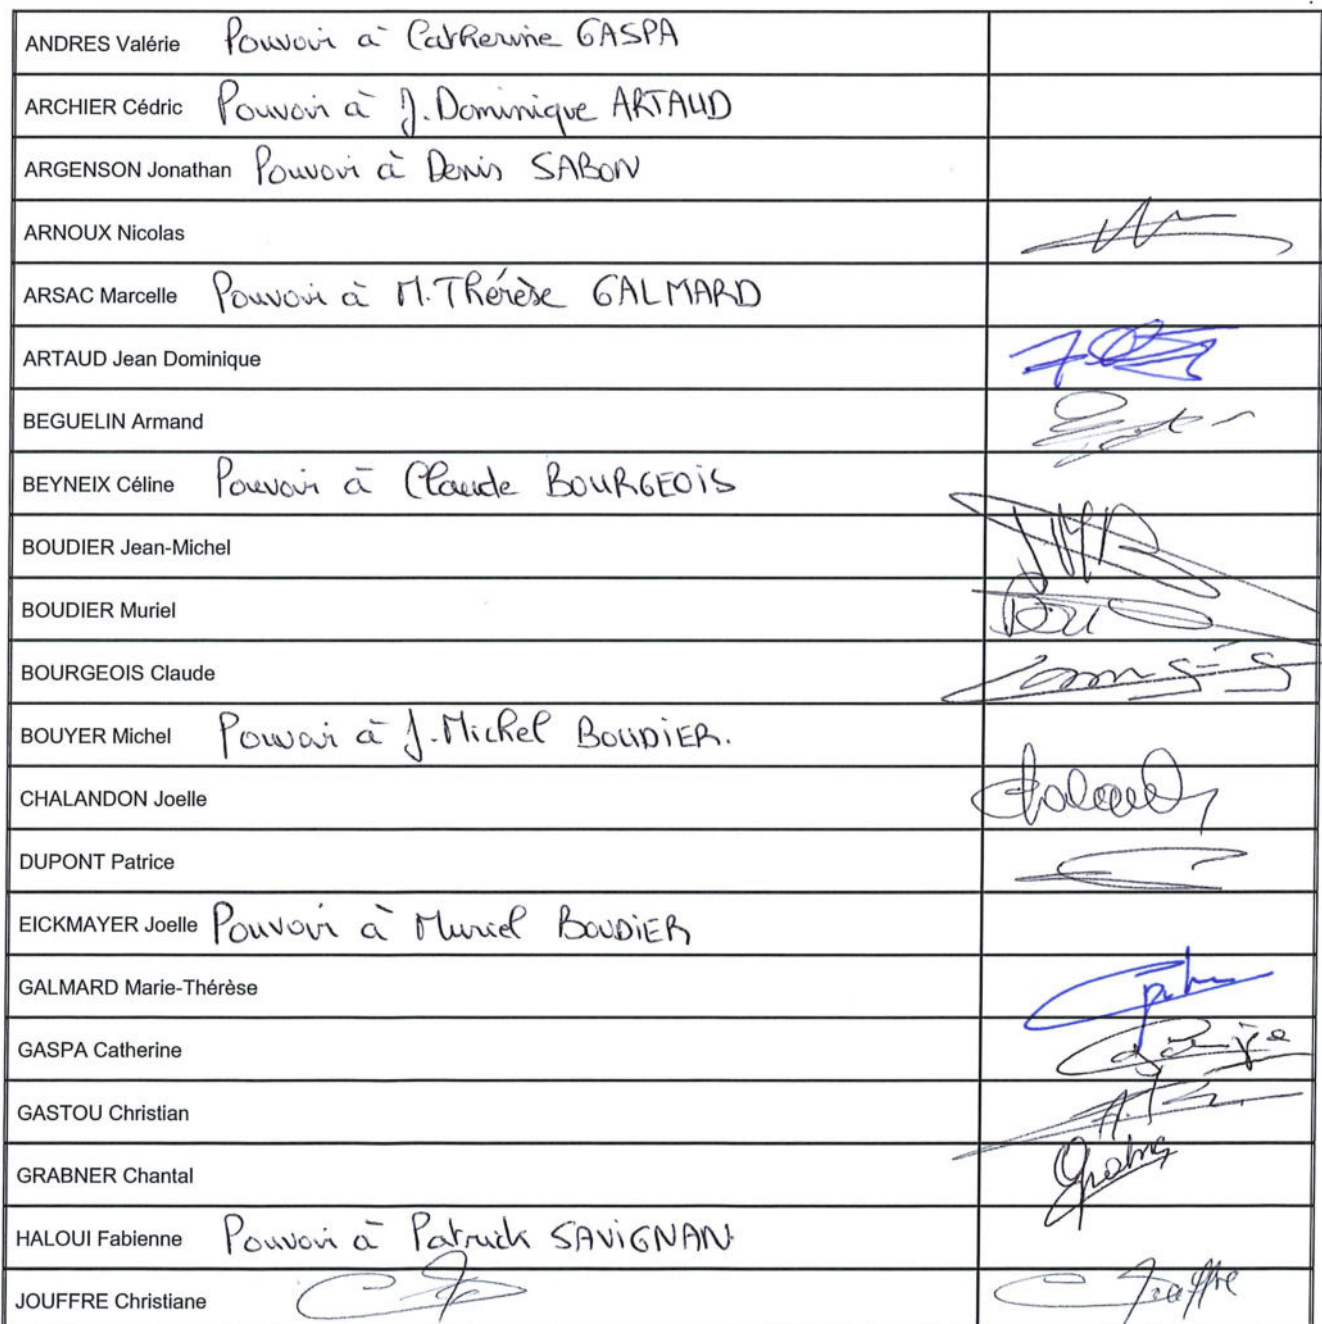 ANDRES Valérie Pouvoir à Catherine GASPA
ARCHIER Cédric Pouvoir à J. Dominique ARTAUD
ARGENSON Jonathan Pouvoir à Denis SABON
ARNOUX Nicolas
ARSAC Marcelle Pouvoir à M. Thérèse GALMARD
ARTAUD Jean Dominique
BEGUELIN Armand
BEYNEIX Céline Pouvoir à Claude BOURGEOIS
BOUDIER Jean-Michel
BOUDIER Muriel
BOURGEOIS Claude
BOUYER Michel Pouvoir à J. Michel BOUDIER.
CHALANDON Joelle
DUPONT Patrice
EICKMAYER Joelle Pouvoir à Muriel BOUDIER
GALMARD Marie-Thérèse
GASPA Catherine
GASTOU Christian
GRABNER Chantal
HALOUI Fabienne Pouvoir à Patrick SAVIGNAN
JOUFFRE Christiane